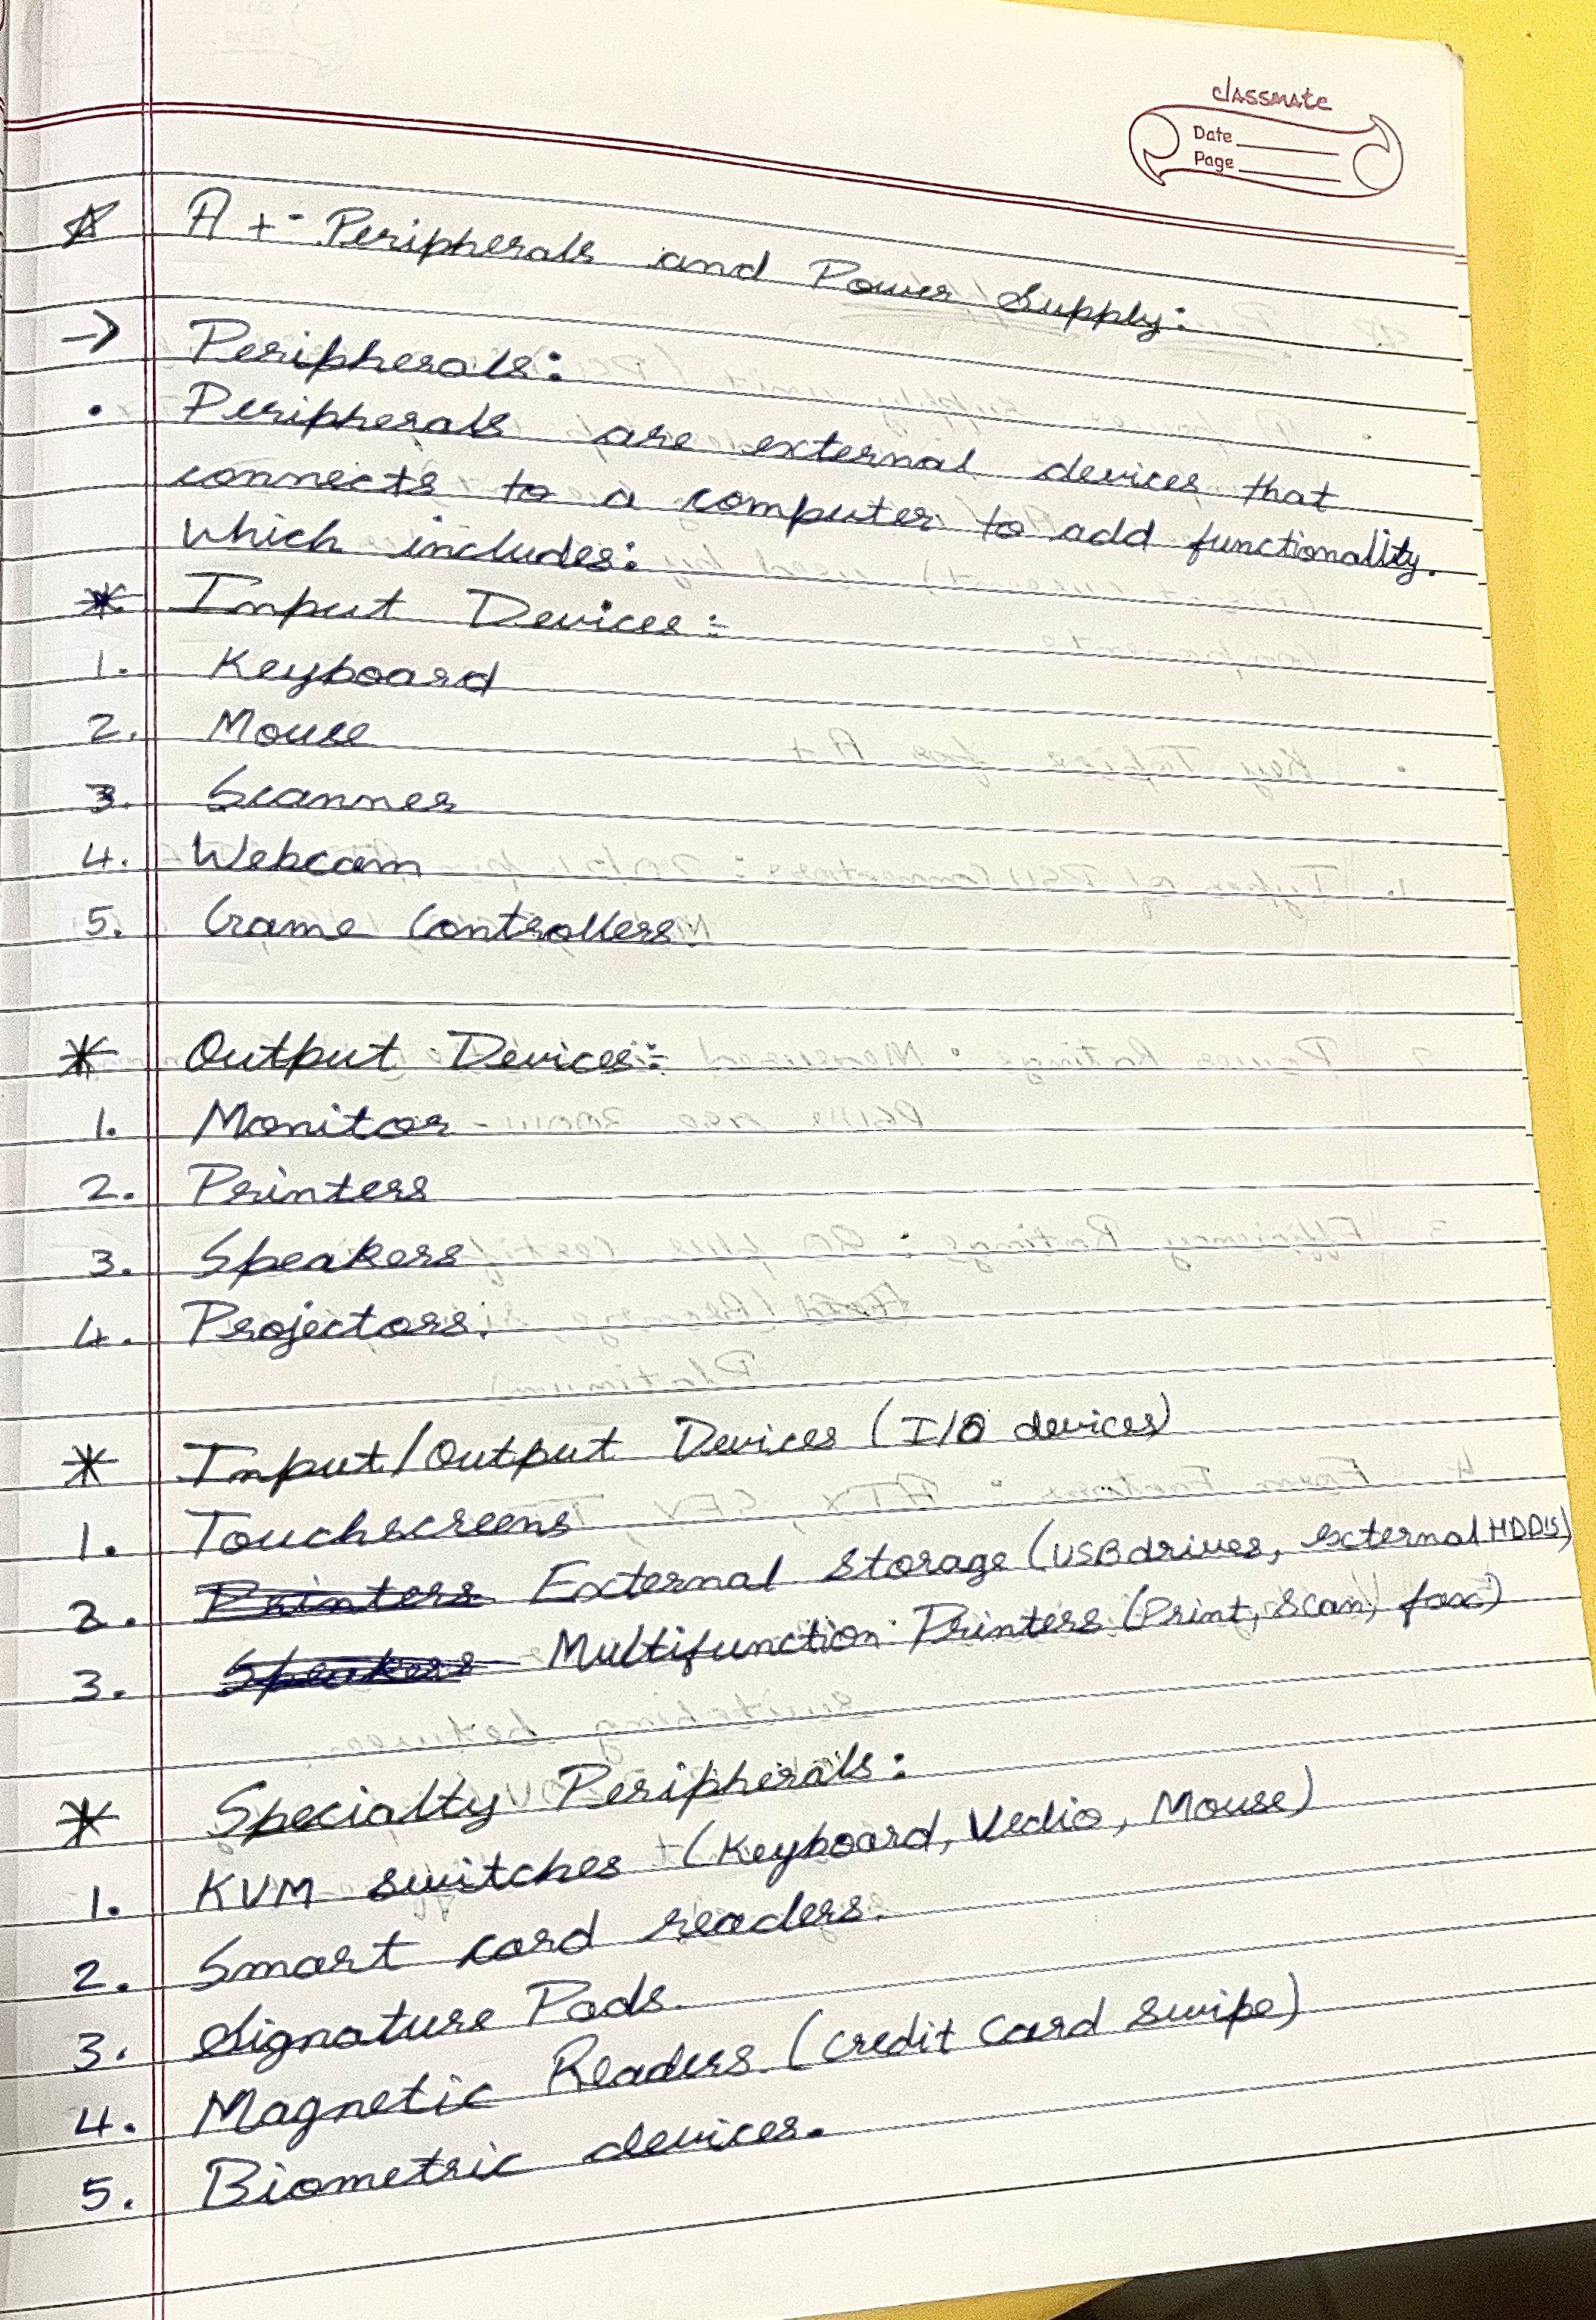 classmate
Date
Page
A+ - Peripherals and Power Supply:
→ Peripherals:
• Peripherals are external devices that
connects to a computer to add functionality.
which includes:
* Input Devices:
1. Keyboard
2. Mouse
3. Scanner
4. Webcam
5. Game Controllers.
* Output Devices:
1. Monitor
2. Printers
3. Speakers
4. Projectors.
* Input/Output Devices (I/O devices)
1. Touchscreens
2. Printers External Storage (USB drives, external HDD's)
3. Speakers Multifunction Printers (Print, Scan, fax)
* Specialty Peripherals:
1. KVM switches (Keyboard, Vedio, Mouse)
2. Smart card readers.
3. Signature Pads.
4. Magnetic Readers (Credit Card Swipe)
5. Biometric devices.